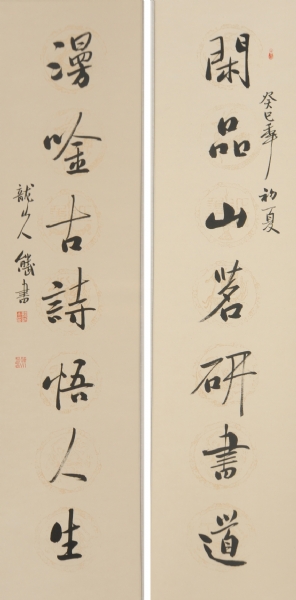 閑品山茗研書道
癸巳年初夏
漫吟古詩悟人生
龍山人 書